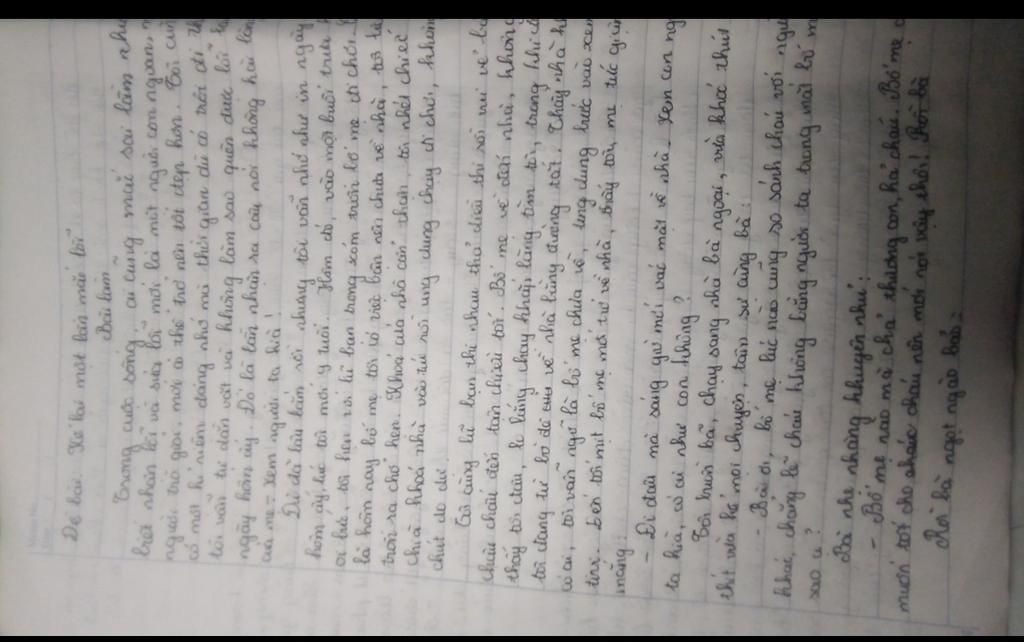 Đề bài: Kể lại một lần mắc lỗi
Bài làm
Trong cuộc sống, ai cũng mắc sai lầm như
biết nhận lỗi và sửa lỗi mới là một người con ngoan,
người trò giỏi, mới có thể trở nên tốt đẹp hơn. Tôi cũ
có một kỉ niệm đáng nhớ mà thời gian dù có trôi đi th
tôi vẫn tự dằn vặt và không làm sao quên được lỗi
ngày hôm ấy. Đó là lần nhận ra câu nói không hài lòn
của mẹ - xem người ta kìa!
Dù đã lâu lắm rồi nhưng tôi vẫn nhớ như in ngày
hôm ấy, lúc tôi mới 7 tuổi. Hôm đó, vào một buổi trưa
oi bức, tôi hẹn với lũ bạn trong xóm trốn bố mẹ đi chơi.
là hôm nay bố mẹ tôi có việc bận nên chưa về nhà, tôi
trời ra chỗ hẹn. Khoá cửa nhà cẩn thận, tôi nhét chiếc
chìa khoá nhà vào túi rồi ung dung chạy đi chơi, khôn
chút do dự
Tôi cùng lũ bạn thi nhau thả diều thi rồi vui vẻ
chiều đến tận chiều tối. Bố mẹ về đến nhà, không
thấy tôi đâu, lo lắng chạy khắp làng tìm tôi, trong khi đó
tôi đang từ bờ đê về nhà bằng đường tắt. Thấy nhà
có ai, tôi vẫn ngỡ là bố mẹ chưa về, ung dung bước vào xem
tivi. Đến tối mịt bố mẹ mới trở về nhà, thấy tôi, mẹ tức giận
mắng:
- Đi đâu mà sáng giờ mới vác mặt về nhà. Xem con ng
ta kìa, có ai như con không?
Tôi buồn bã, chạy sang nhà bà ngoại, vừa khóc thút
thít vừa kể mọi chuyện, tâm sự cùng bà:
- Bà ơi, bố mẹ lúc nào cũng so sánh cháu với ngư
khác, chẳng lẽ cháu không bằng người ta trong mắt bố m
sao ạ?
Bà nhẹ nhàng khuyên nhủ:
- Bố mẹ nào mà chả thương con, hả cháu. Bố mẹ
muốn tốt cho cháu nên mới nói vậy thôi! Rồi bà
Rồi bà ngọt ngào bảo: